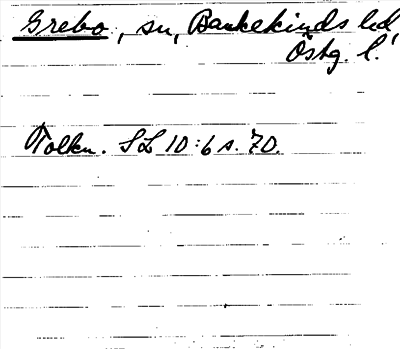 Grebo, sn, Bankekinds hd
Östg. l.
Tolkn. SL 10:6 s. 70.